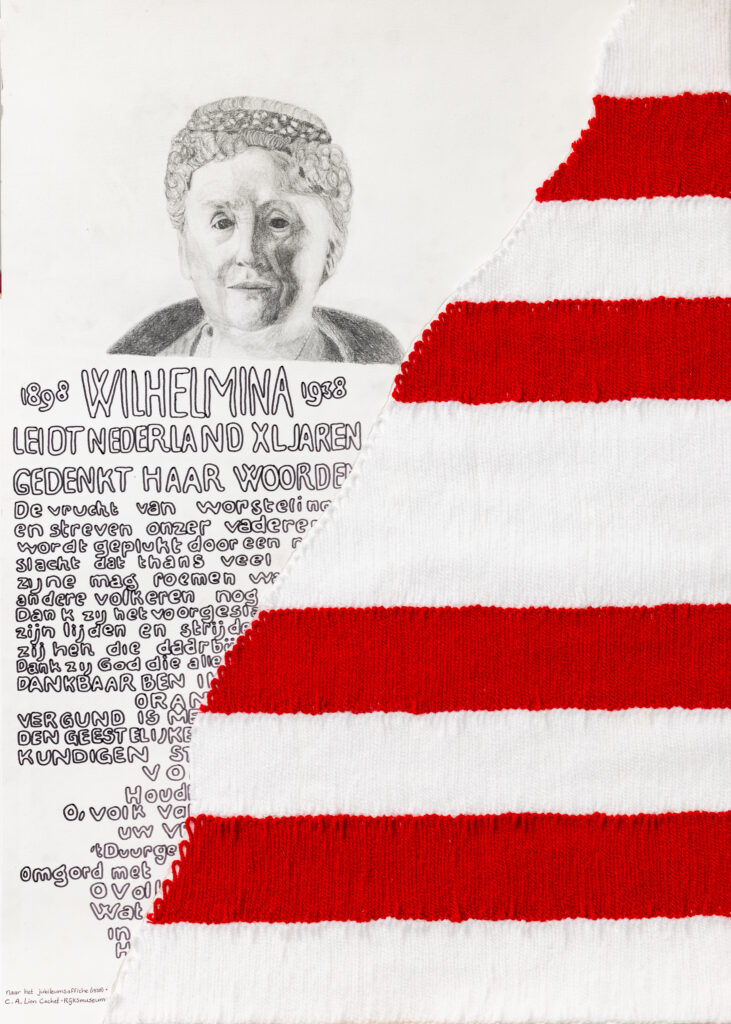 1898 WILHELMINA 1938
LEIDT NEDERLAND XL JAREN
GEDENKT HAAR WOORDEN
De vrucht van worsteling
en streven onzer vaderen
wordt geplukt door een
slacht dat thans veel
zijne mag roemen wa
andere volkeren nog
Dank zij het voorgesla
zijn lijden en strijde
zij hen die daarbij
Dank zij God die alle
DANKBAAR BEN I
ORAN
VERGUND IS ME
DEN GEESTELIJKE
KUNDIGEN ST
VO
Houd
O, volk va
uw v
't Duurge
omgord met
O Vol
Wat
in
H
naar het jubileumsaffiche (1938) -
C. A. Lion Cachet - Rijksmuseum